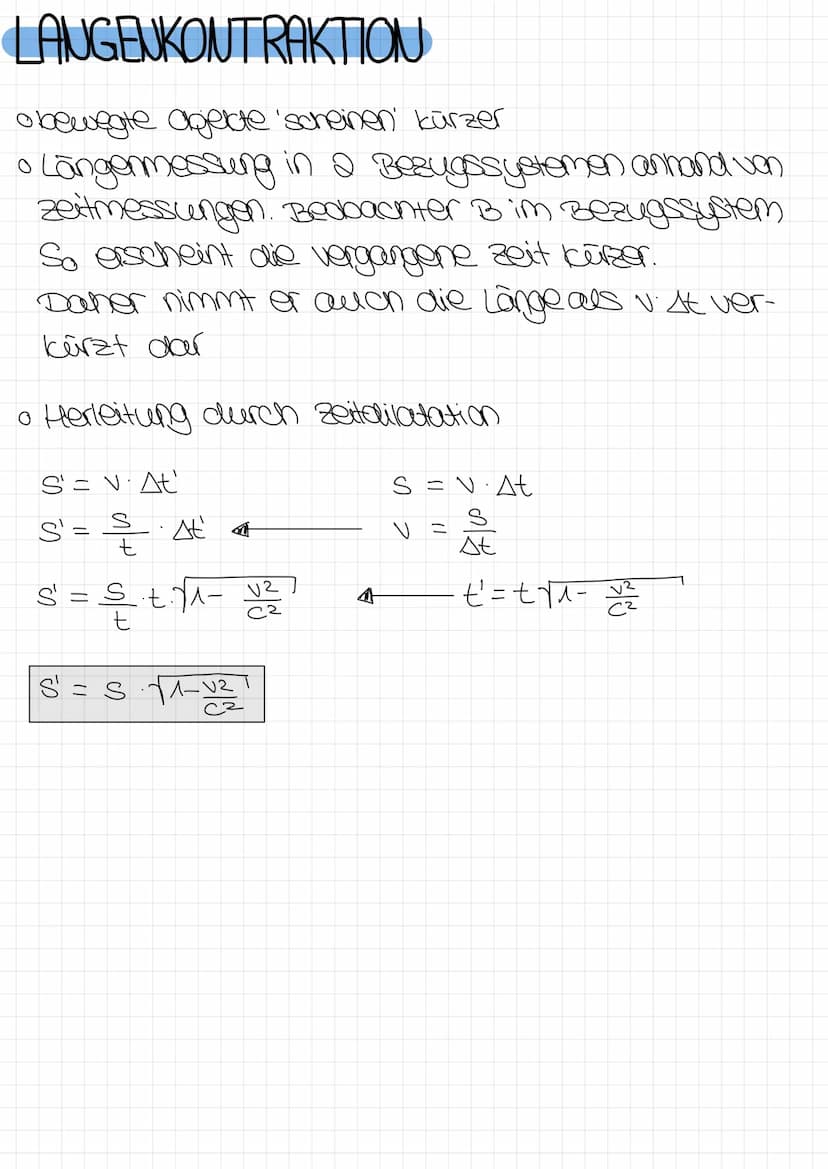 LÄNGENKONTRAKTION
o bewegte Objekte 'scheinen' kürzer
o Längenmessung in 2 Bezugssystemen anhand von
Zeitmessungen. Beobachter B im Bezugssystem
So erscheint die vergangene Zeit kürzer.
Daher nimmt er auch die Länge als v·Δt ver-
kürzt dar
o Herleitung durch Zeitdilatation
S' = V · Δt'    S = V · Δt
S' = S/t · Δt' ← V = S/Δt
S' = S/t · t · √1 - V²/C² ← t' = t √1 - V²/C²
S' = S · √1 - V²/C²